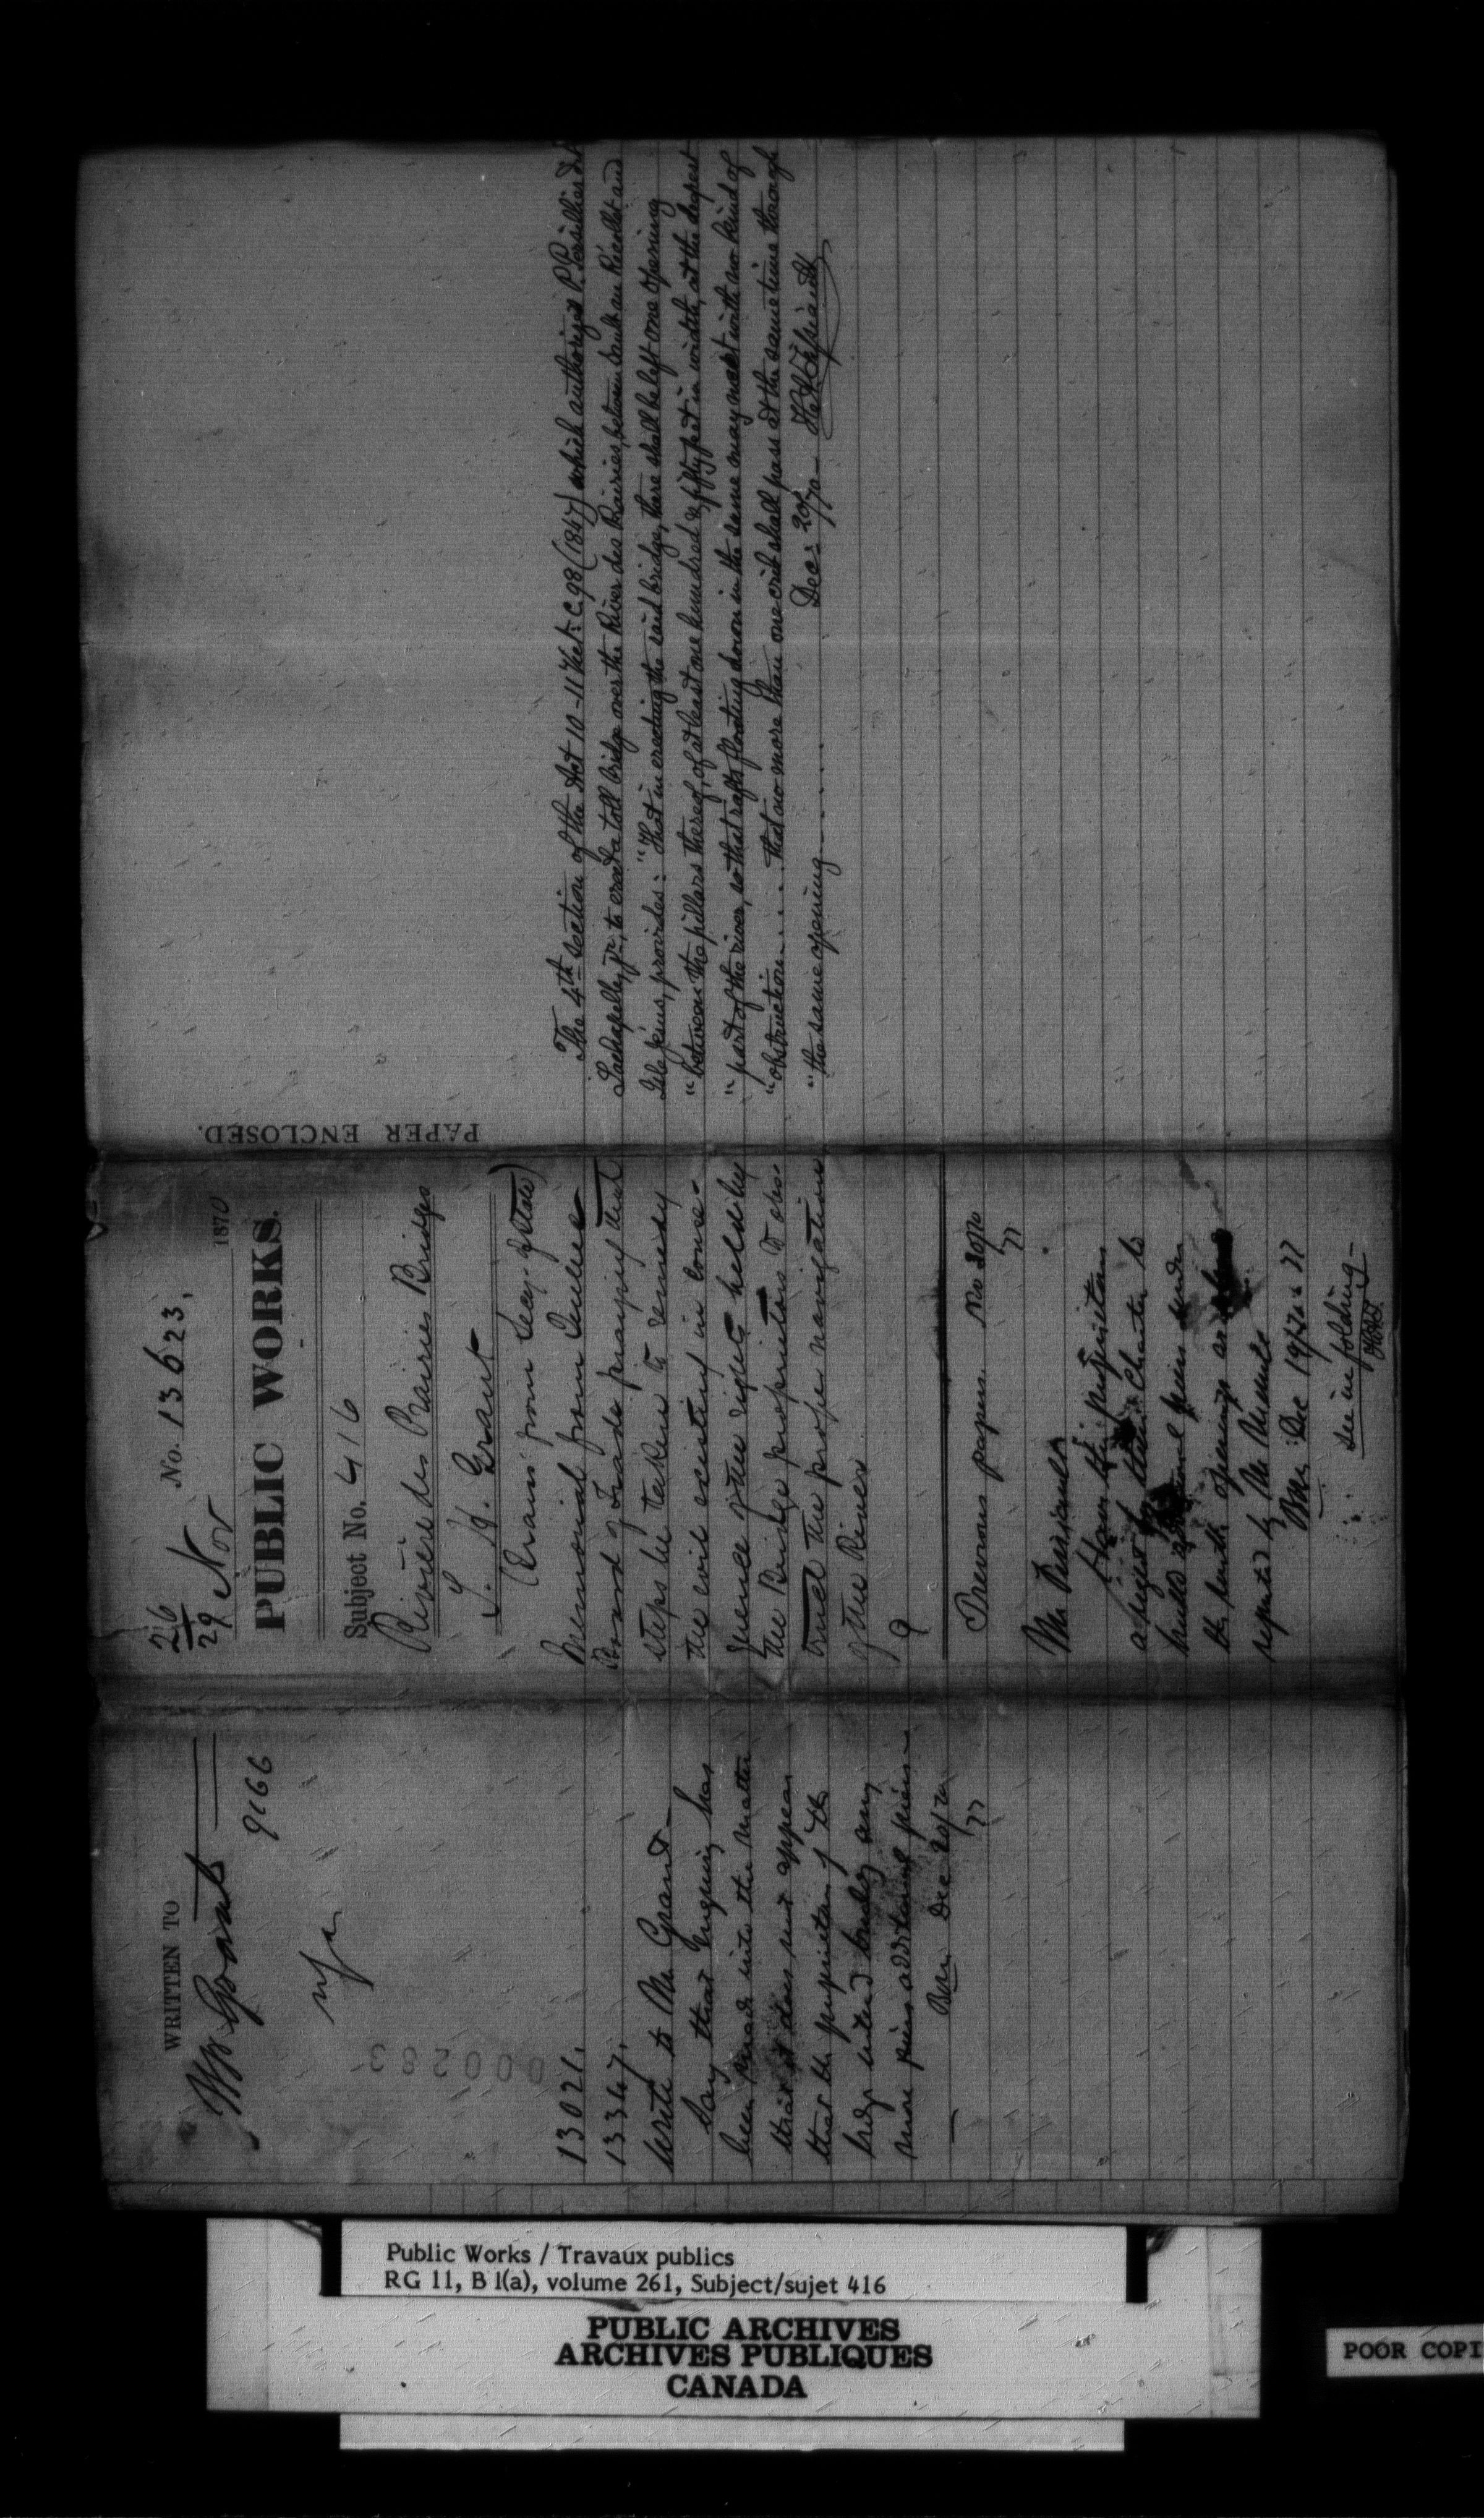 WRITTEN TO
Wm Grant
9166
13021.
13347.
Write to Mr Grant
Say that enquiry has
been made into the matter
that it does not appear
that the proprietors of the
bridge intend building any
more piers additional piers
Dec 20/70
000283
26
29 Nov
No. 13623,
1870
PUBLIC WORKS.
Subject No. 416
Rivière des Prairies Bridges
G. H. Grant
(Trans: from Secy. of State)
Memorial from Quebec
Board of Trade praying that
steps be taken to remedy
the evil existing in conse-
quence of the rights held by
the Bridge proprietors to obs-
truct the proper navigation
of the River
9
Previous papers. No 2070
Mr Braun
Have the proprietors
a right by their Charter to
build additional piers under
the openings as
reported by Mr
Dec 19/70
See in folding
PAPER ENCLOSED.
The 4th Section of the Act 10-11 Vict: C. 98 (1847) which authorized P. Persillier dit
Lachapelle, Jr., to erect a toll bridge over the River des Prairies, between Sault au Récollet and
Isle Jésus, provides: "That in erecting the said bridge, there shall be left one opening
"between the pillars thereof, of at least one hundred & fifty feet in width, at the deepest
"part of the river, so that rafts floating down in the same may meet with no kind of
"obstruction . . . . that no more than one crib shall pass at the same time through
"the same opening . . . . .
Dec: 20/70
Public Works / Travaux publics
RG 11, B 1(a), volume 261, Subject/sujet 416
PUBLIC ARCHIVES
ARCHIVES PUBLIQUES
CANADA
POOR COPI